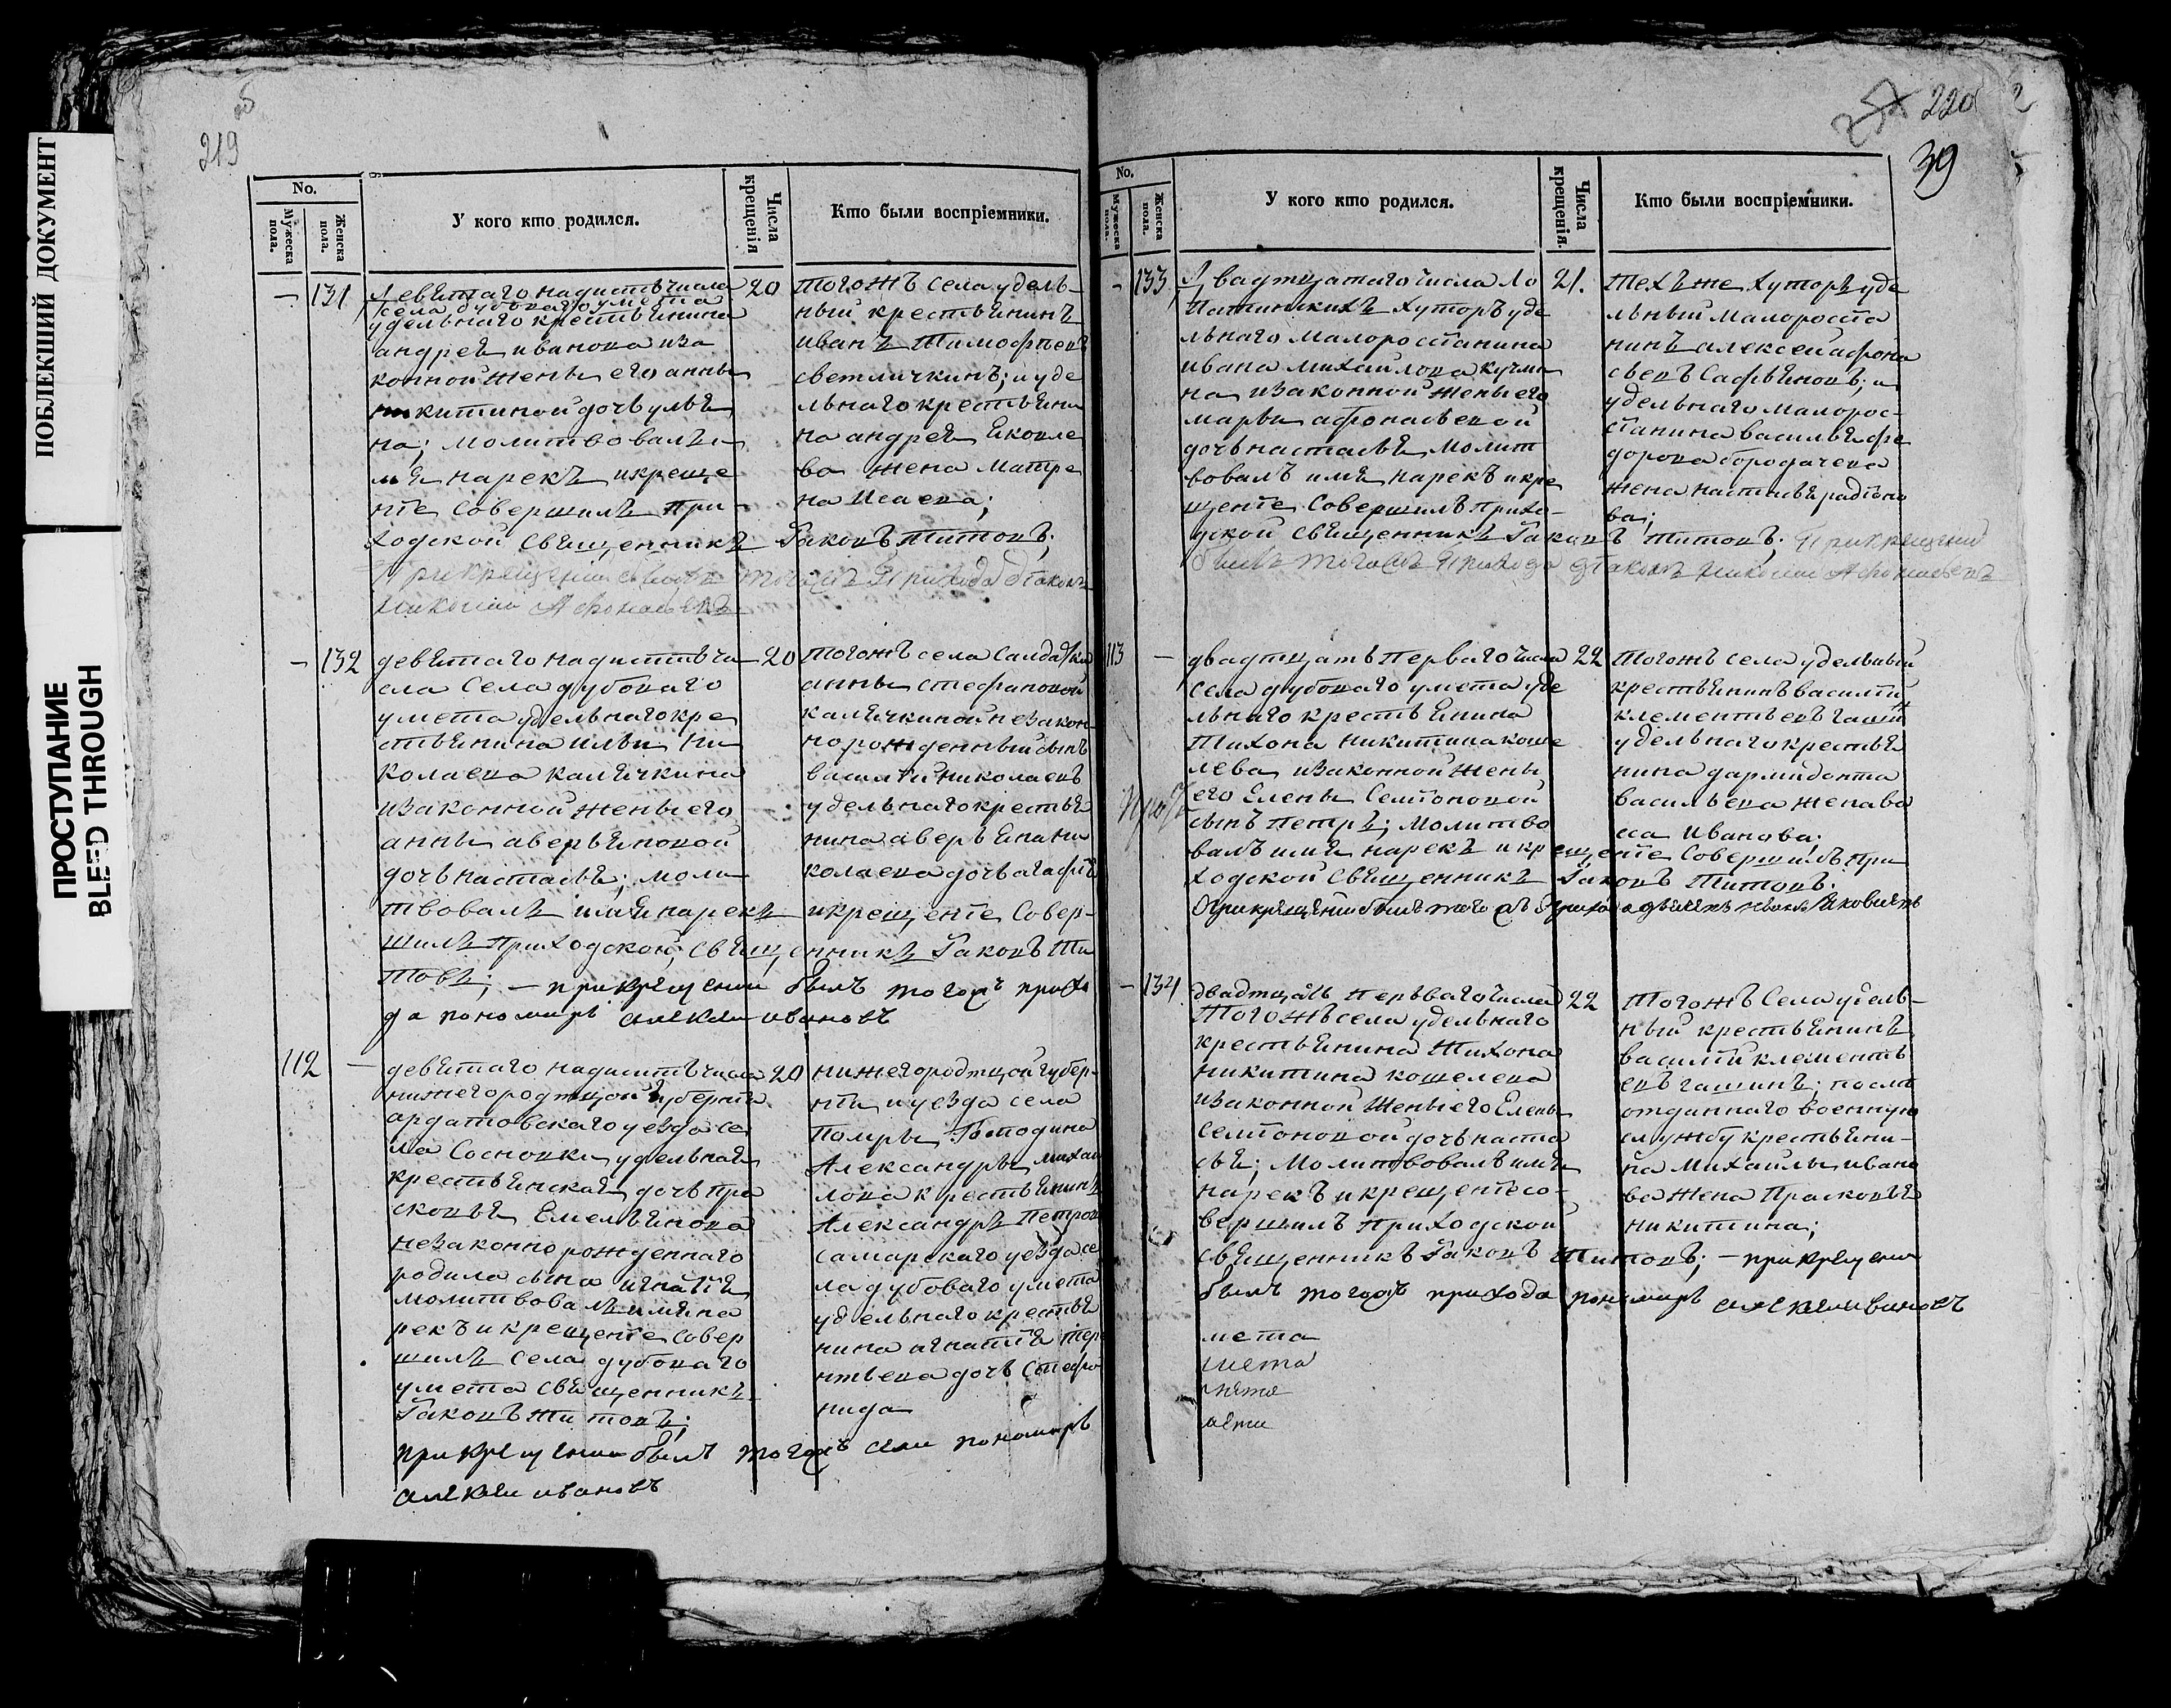 ПОБЛЕКШИЙ ДОКУМЕНТ
ПРОСТУПАНИЕ
BLEED THROUGH
219
No.
Мужеска пола.
Женска пола.
У кого кто родился.
Числа крещенія
Кто были воспріемники.
— 131
Девятаго надцать числа
села дубоваго умета
удельнаго крестьянина
андрея иванова иза
конной жены его анны
никитиной дочь улья
на; молитвовалъ и
мя нарекъ и креще
ніе совершилъ при-
ходской священникъ Іаковъ Титовъ;
При крещении былъ тогожъ Прихода дїаконъ
Николай Афонасьевъ
20
тогожъ села удель-
ный крестьянинъ
иванъ Тимофеевъ
светличкинъ; и уде
льнаго крестьяни
на андрея яковле
ва жена матре
на Исаева;
— 132
девятаго надцать чи
сла села дубоваго
умета удельнаго кре
стьянина ильи ни
колаева калячкина
изаконной жены его
анны аверьяновой
дочь настасья; моли
твовалъ имя нарекъ и крещеніе совер-
шилъ приходской; священникъ Іаковъ Ти
товъ; — при крещении былъ тогожъ прихо
да пономарь алексеи ивановъ
20
тогожъ села салдатки
анны стефановой
калячкиной незакон
норожденный сынъ
василій николаевъ
удельнаго крестья
нина аверьяна ни
колаева дочь агафія
112 —
девятаго надцать числа
нижегородцкой губерніи
ардатовскаго уезда се
ла Сосновки удельная
крестьянская дочь пра
сковья Емельянова
незаконно рожденнаго
родила сына игнатія
молитвовалъ имя на
рекъ и крещеніе совер
шилъ села дубоваго
умета священникъ
Іаковъ Титовъ;
при крещении былъ тогожъ села пономарь
алексеи ивановъ
20
нижегородцкой губер-
ніи и уезда села
Помры Господина
Александры михаи
лова крестьянинъ
Александръ Петров
самарскаго уезда се
ла дубоваго умета
удельнаго крестья
нина игнатія тере
нтьева дочь Стефа
нида
220
39
No.
Мужеска пола.
Женска пола.
У кого кто родился.
Числа крещенія.
Кто были воспріемники.
— 133
Двадцатаго числа Ло
патинскихъ хуторъ уде
льнаго малоросіанина
ивана михаилова кучми
на изаконной жены его
марьи афонасьевой
дочь настасья молит
вовалъ имя нарекъ и кре
щеніе совершилъ прихо-
дской священникъ Іаковъ Титовъ; При крещении
былъ тогожъ Прихода дїаконъ Николай Афонасьевъ
21.
техъ же хуторъ уде
льный малоросіа
нинъ алексей афона
сьевъ Сафьяновъ; и
удельнаго малорос-
сіанина василья фе
дорова бородачева
жена настасья радіоно
ва;
113 —
двадцать перваго числа
села дубоваго умета уде
льнаго крестьянина
Тихона никитина коше
лева изаконной жены
его Елены Семіоновой
сынъ Петръ; молитво
валъ имя нарекъ и крещеніе совершилъ при
ходской священникъ Іаковъ Титовъ.
При крещении былъ того жъ прихода дьячекъ иванъ Яковлевъ
22
тогожъ села удельный
крестьянинъ василій
клементьевъ гашин
удельнаго крестья
нина дармидонта
васильева жена ва
са Иванова;
— 134
двадцать перьваго числа
тогожъ села удельнаго
крестьянина Тихона
никитина кошелева
изаконной жены его Елены
семіоновой дочь наста
сья; молитвовалъ имя
нарекъ и крещеніе со-
вершилъ приходской
священникъ Іаковъ Титовъ; — при крещении
былъ тогожъ прихода пономарь алексеи ивановъ
22
тогожъ села удель-
ный крестьянинъ
василій клементь
евъ гашинъ; после
отданнаго военную
службу крестьяни-
на Михаилы ивано
ва жена Прасковья
никитина;
мета